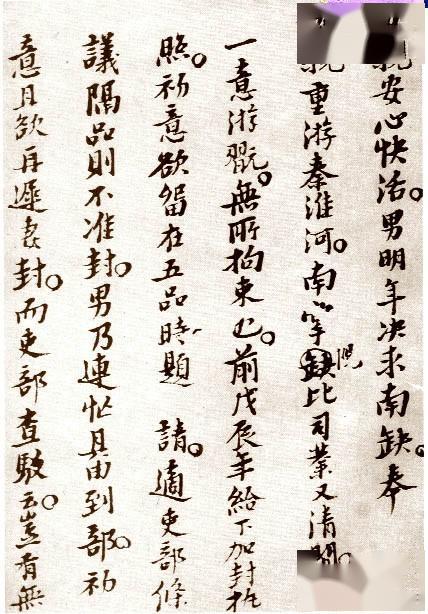 親安心快活。男明年决求南缺。奉
親重游秦淮河。南缺比司業又清閒。
一意游翫。無所拘束也。前戊辰年給下加封
照。初意欲留在五品時題 請。適吏部條
議隔品則不准封。男乃連忙具由到部。初
意且欲再遲封。而吏部查駁云。豈有無